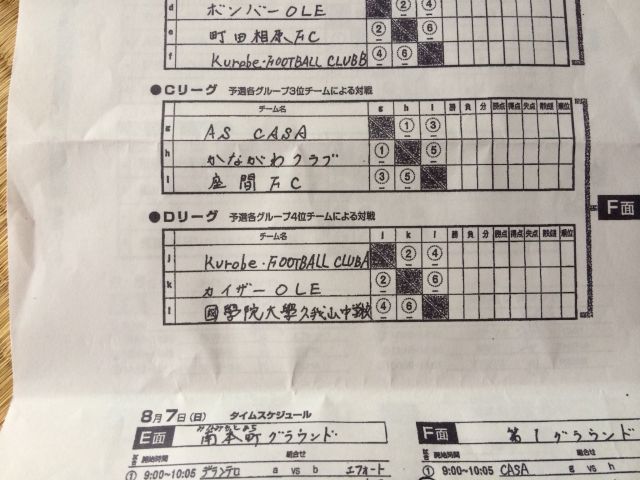 d ボンバーOLE ② ④
e 町田相原FC ② ⑥
f Kurobe・FOOTBALL CLUB B ④ ⑥
●Cリーグ 予選各グループ3位チームによる対戦
チーム名 g h i 勝 負 分 勝点 得点 失点 得失点 順位
g AS CASA ① ③
h かながわクラブ ① ⑤
i 座間FC ③ ⑤
F面
●Dリーグ 予選各グループ4位チームによる対戦
チーム名 j k l 勝 負 分 勝点 得点 失点 順位
j Kurobe・FOOTBALL CLUB A ② ④
k カイザーOLE ② ⑥
l 國學院大學久我山中学校 ④ ⑥
8月7日(日) タイムスケジュール
E面 南本町グラウンド
F面 第1グラウンド
開始時間 組合せ
開始時間 組合せ
① 9:00~10:05 デランテロ a vs b エフォート
① 9:00~10:05 CASA g vs h